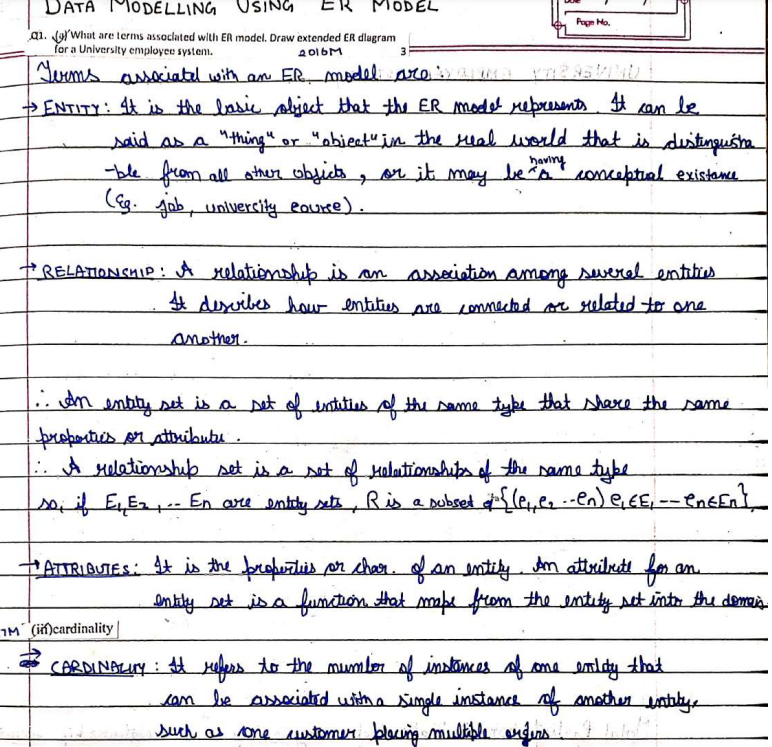 DATA MODELLING USING ER MODEL
Page No.
Q1. (g) What are terms associated with ER model. Draw extended ER diagram
for a University employee system. 2016M 3
Terms associatd with an ER model are:
→ ENTITY: It is the basic object that the ER model represents. It can be
said as a "thing" or "object" in the real world that is distinguisha
-ble from all other objects, or it may be having a conceptual existance
(Eg. job, university course).
→ RELATIONSHIP: A relationship is an association among several entities
It describes how entities are connected or related to one
another.
∴ An entity set is a set of entities of the same type that share the same
properties or attribute.
∴ A relationship set is a set of relationships of the same type
so, if E1, E2, -- En are entity sets, R is a subset of {(e1, e2 -- en) e1∈E1 -- en∈En}
→ ATTRIBUTES: It is the properties or char. of an entity. An attribute for an
entity set is a function that maps from the entity set into the domain
7M (iii)cardinality
⇒ CARDINALITY: It refers to the number of instances of one entity that
can be associated with a single instance of another entity,
such as one customer placing multiple orders